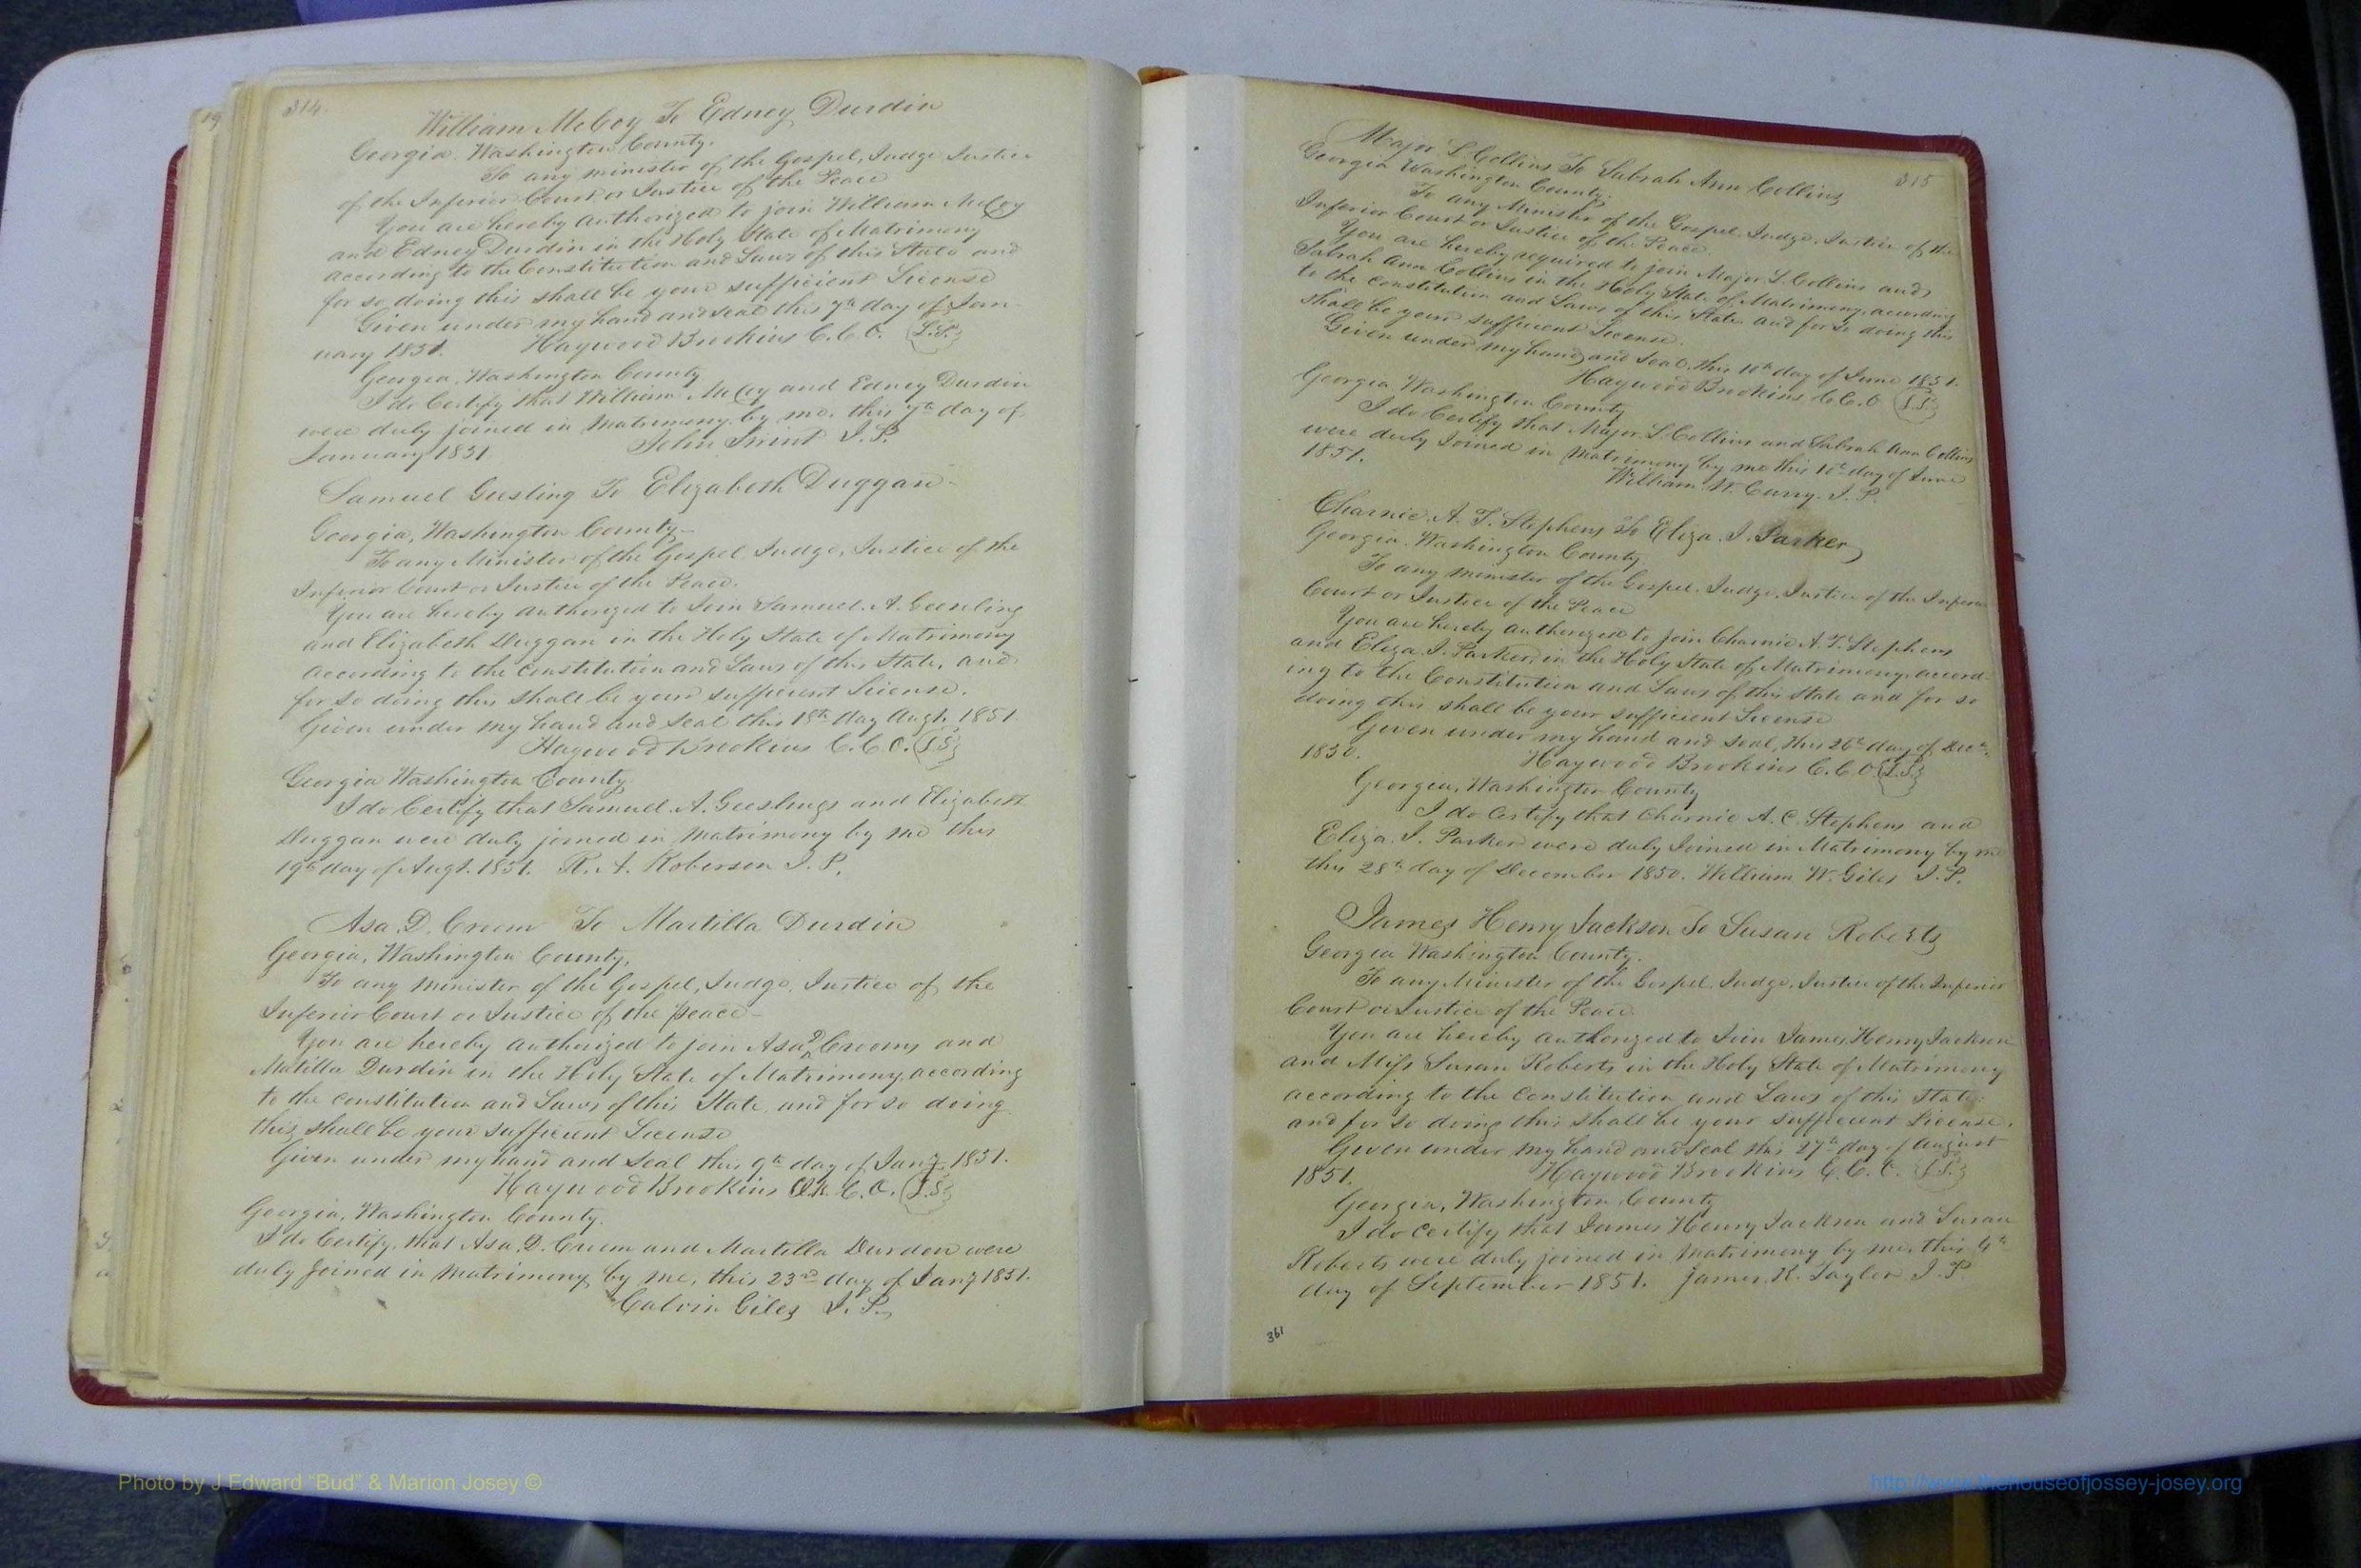 314.
19
William McCoy To Edney Durdin
Georgia. Washington County.
To any minister of the Gospel, Judge Justice
of the Inferior Court or Justice of the Peace
You are hereby authorized to join William McCoy
and Edney Durdin in the Holy State of Matrimony
according to the Constitution and Laws of this State and
for so doing this shall be your sufficient License
Given under my hand and seal this 7th day of Jan
uary 1851. Haywood Brookins C.C.O. (L.S.)
Georgia, Washington County
I do Certify that William McCoy and Edney Durdin
were duly joined in Matrimony by me. this 7th day of
January 1851 John Smint J.P.
Samuel Geesling To Elizabeth Duggan
Georgia, Washington County
To any Minister of the Gospel Judge, Justice of the
Inferior Court or Justice of the Peace.
You are hereby authorized to Join Samuel. A. Geesling
and Elizabeth Duggan in the Holy State of Matrimony
according to the constitution and Laws of this State, and
for so doing this shall be your sufficient License.
Given under my hand and seal this 18th day Augt. 1851
Haywood Brookins C.C.O. (L.S.)
Georgia Washington County
I do Certify that Samuel. A. Geeslings and Elizabeth
Duggan were duly joined in Matrimony by me this
19th day of Augt. 1851. R. A. Roberson J.P.
Asa. D. Croom To Martilla Durdin
Georgia, Washington County,
To any minister of the Gospel, Judge, Justice of the
Inferior Court or Justice of the peace-
You are hereby authorized to join Asa D Crooms and
Matilla Durdin in the Holy State of Matrimony, according
to the constitution and Laws of this State, and for so doing
this shall be your sufficient License
Given under my hand and seal this 9th day of Jany 1851.
Haywood Brookins Clk. C.O. (L.S.)
Georgia, Washington County.
I do Certify. that Asa. D. Croom and Martilla Durden were
duly joined in Matrimony by me, this 23rd day of Jany 1851.
Calvin Giles J.P.
Major S. Collins To Sabrah Ann Collins
315
Georgia Washington County
To any Minister of the Gospel. Judge. Justice of the
Inferior Court or Justice of the Peace.
You are hereby required to join Major. S. Collins and
Sabrah Ann Collins in the Holy State of Matrimony, according
to the constitution and Laws of this State and for so doing this
shall be your sufficient License.
Given under my hand and seal. this 10th day of June 1851.
Haywood Brookins C.C.O (L.S.)
Georgia Washington County
I do Certify that Major. S. Collins and Sabrah Ann Collins
were duly Joined in Matrimony by me this 10th day of June
1851. William. W. Curry. J.P.
Charnic. A. T. Stephens To Eliza. J. Parker
Georgia. Washington County.
To any minister of the Gospel. Judge. Justice of the Inferior
Court or Justice of the Peace
You are hereby authorized to join Charnic A. T. Stephens
and Eliza. J. Parker, in the Holy State of Matrimony, accord-
ing to the Constitution and Laws of this State and for so
doing this shall be your sufficient License
Given under my hand and seal, this 26th day of Decr.
1850. Haywood Brookins C.C.O (L.S.)
Georgia, Washington County
I do certify that Charnic A. C. Stephens and
Eliza. J. Parker were duly Joined in Matrimony by me
this 28th day of December 1850. William W. Giles J.P.
James Henry Jackson To Susan Roberts
Georgia Washington County.
To any Minister of the Gospel. Judge. Justice of the Inferior
Court or Justice of the Peace.
You are hereby authorized to Join James Henry Jackson
and Miss Susan Roberts in the Holy State of Matrimony
according to the constitution and Laws of this State
and for so doing this shall be your sufficient License.
Given under my hand and seal this 27th day of August
1851. Haywood Brookins C.C.O. (L.S.)
Georgia, Washington County
I do certify that James Henry Jackson and Susan
Roberts were duly joined in Matrimony by me, this 4th
day of September 1851. James. R. Taylor J.P.
361
Photo by J Edward "Bud" & Marion Josey ©
http://www.thehouseofjossey-josey.org